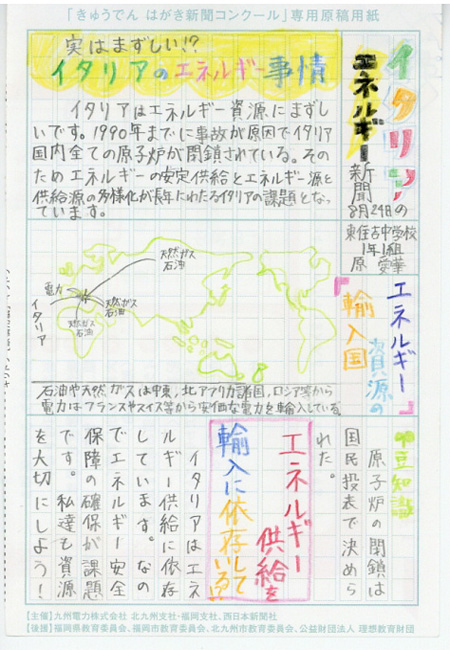 「きゅうでん はがき新聞コンクール」専用原稿用紙
イタリア
エネルギー
新聞
8月24日の
東住吉中学校
1年1組
原 愛華
実はまずしい!?
イタリアのエネルギー事情
イタリアはエネルギー資源にまずし
いです。1990年までに事故が原因でイタリア
国内全ての原子炉が閉鎖されている。その
ためエネルギーの安定供給とエネルギー源と
供給源の多様化が長年にわたるイタリアの課題となっ
ています。
エネルギー
資源の
『輸入国』
天然ガス
石油
電力
天然ガス
石油
天然ガス
石油
イタリア
石油や天然ガスは中東,北アフリカ諸国,ロシア等から
電力はフランスやスイス等から安価な電力を輸入している。
豆知識
原子炉の閉鎖は
国民投表で決めら
れた。
エネルギー
供給を
輸入に依存して
いる!?
イタリアはエネ
ルギー供給に依存
しています。なの
でエネルギー安全
保障の確保が課題
です。私達も資源
を大切にしよう!
【主催】九州電力株式会社 北九州支社・福岡支社、西日本新聞社
【後援】福岡県教育委員会、福岡市教育委員会、北九州市教育委員会、公益財団法人 理想教育財団